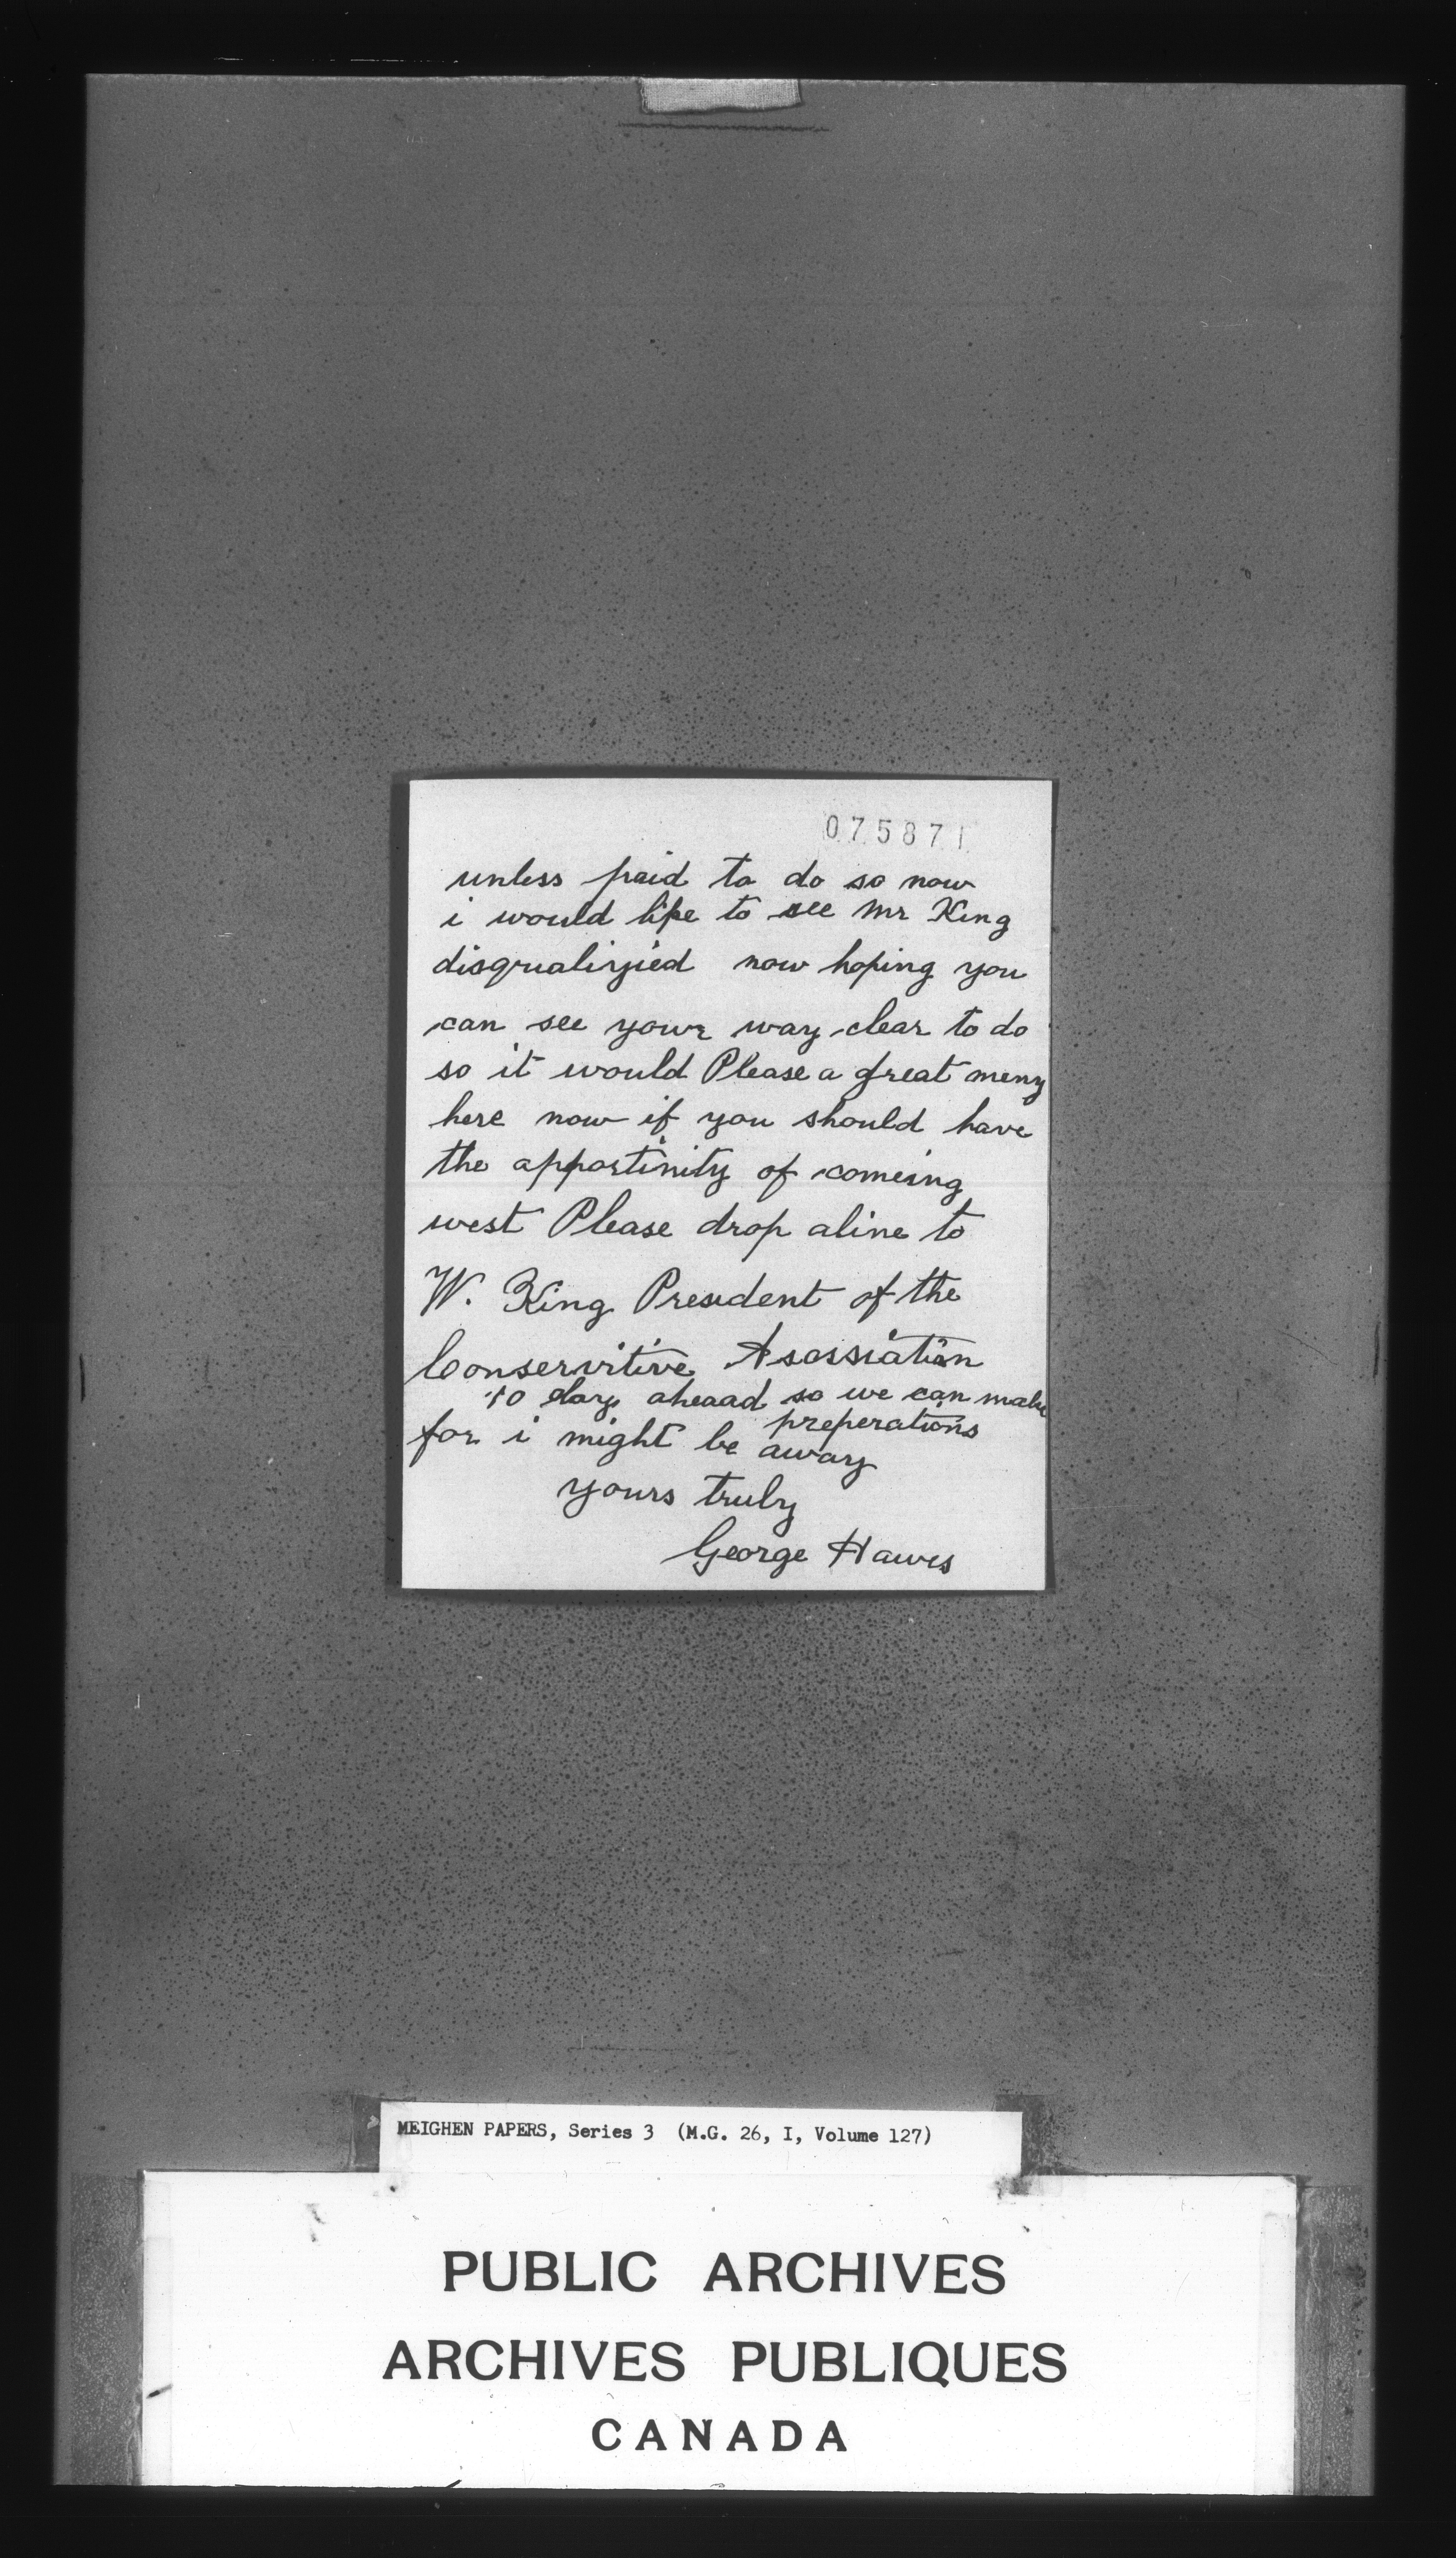 075871
unless paid to do so now
i would like to see Mr King
disqualifyied now hoping you
can see your way clear to do
so it would Please a great meny
here now if you should have
the apportinity of comeing
west Please drop aline to
W. King President of the
Conservitive Asossiation
10 days aheaad so we can make
preperations
for i might be away
yours truly
George Hawes
MEIGHEN PAPERS, Series 3 (M.G. 26, I, Volume 127)
PUBLIC ARCHIVES
ARCHIVES PUBLIQUES
CANADA